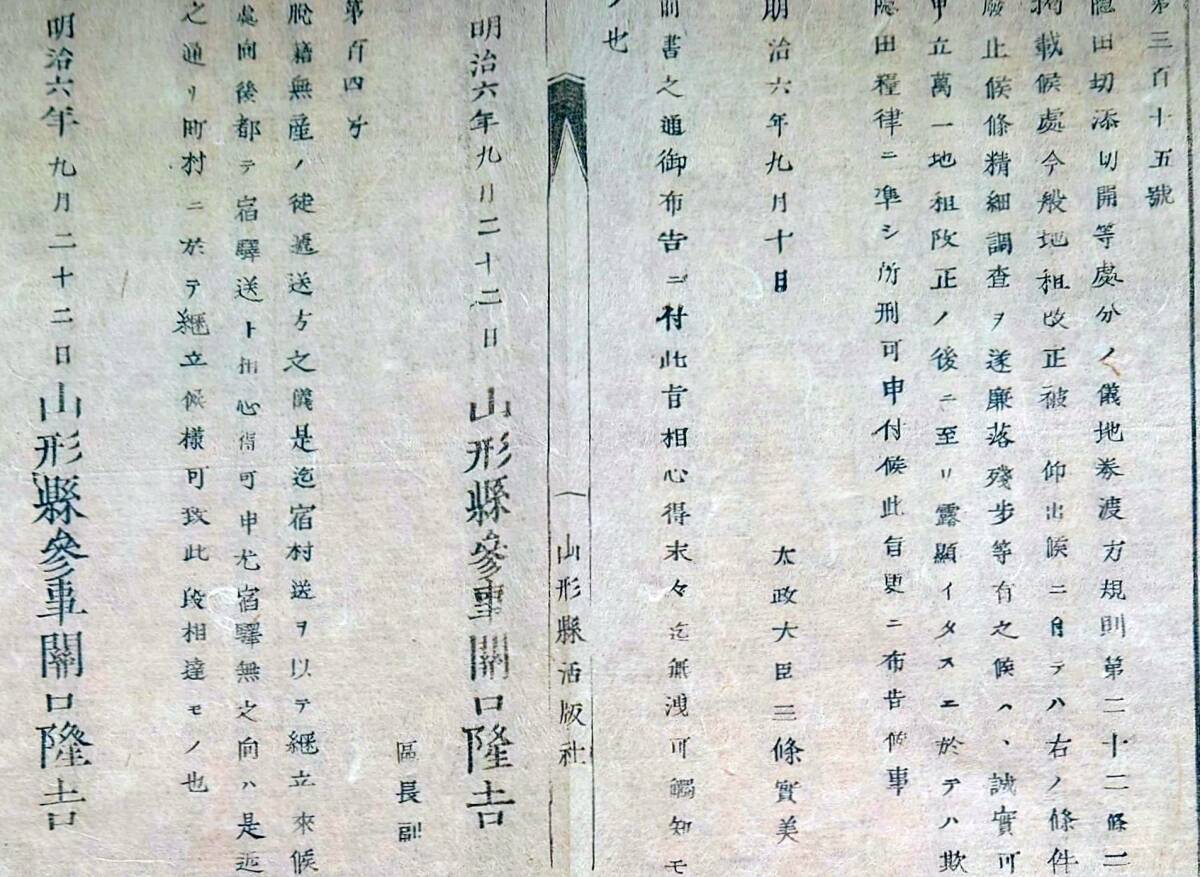 第三百十五號
隠田切添切開等處分ノ儀地券渡方規則第二十二條ニ
掲載候處今般地租改正被 仰出候ニ自テハ右ノ條件
廢止候條精細調査ヲ遂廉落殘歩等有之候ハヽ誠實可
申立萬一地租改正ノ後ニ至リ露顯イタスニ於テハ欺
隠田糧律ニ準シ所刑可申付候此旨更ニ布告候事
明治六年九月十日
太政大臣三條實美
前書之通御布告ニ付此旨相心得末々迄無洩可觸知モ
ノ也
明治六年九月二十二日 山形縣參事關口隆吉
一 山形縣活版社
區長副
第百四号
脱籍無産ノ徒遞送方之儀是迄宿村送ヲ以テ繼立來候
處向後都テ宿驛送ト相心得可申尤宿驛無之向ハ是迄
之通リ町村ニ於テ繼立候樣可致此段相達モノ也
明治六年九月二十二日 山形縣參事關口隆吉